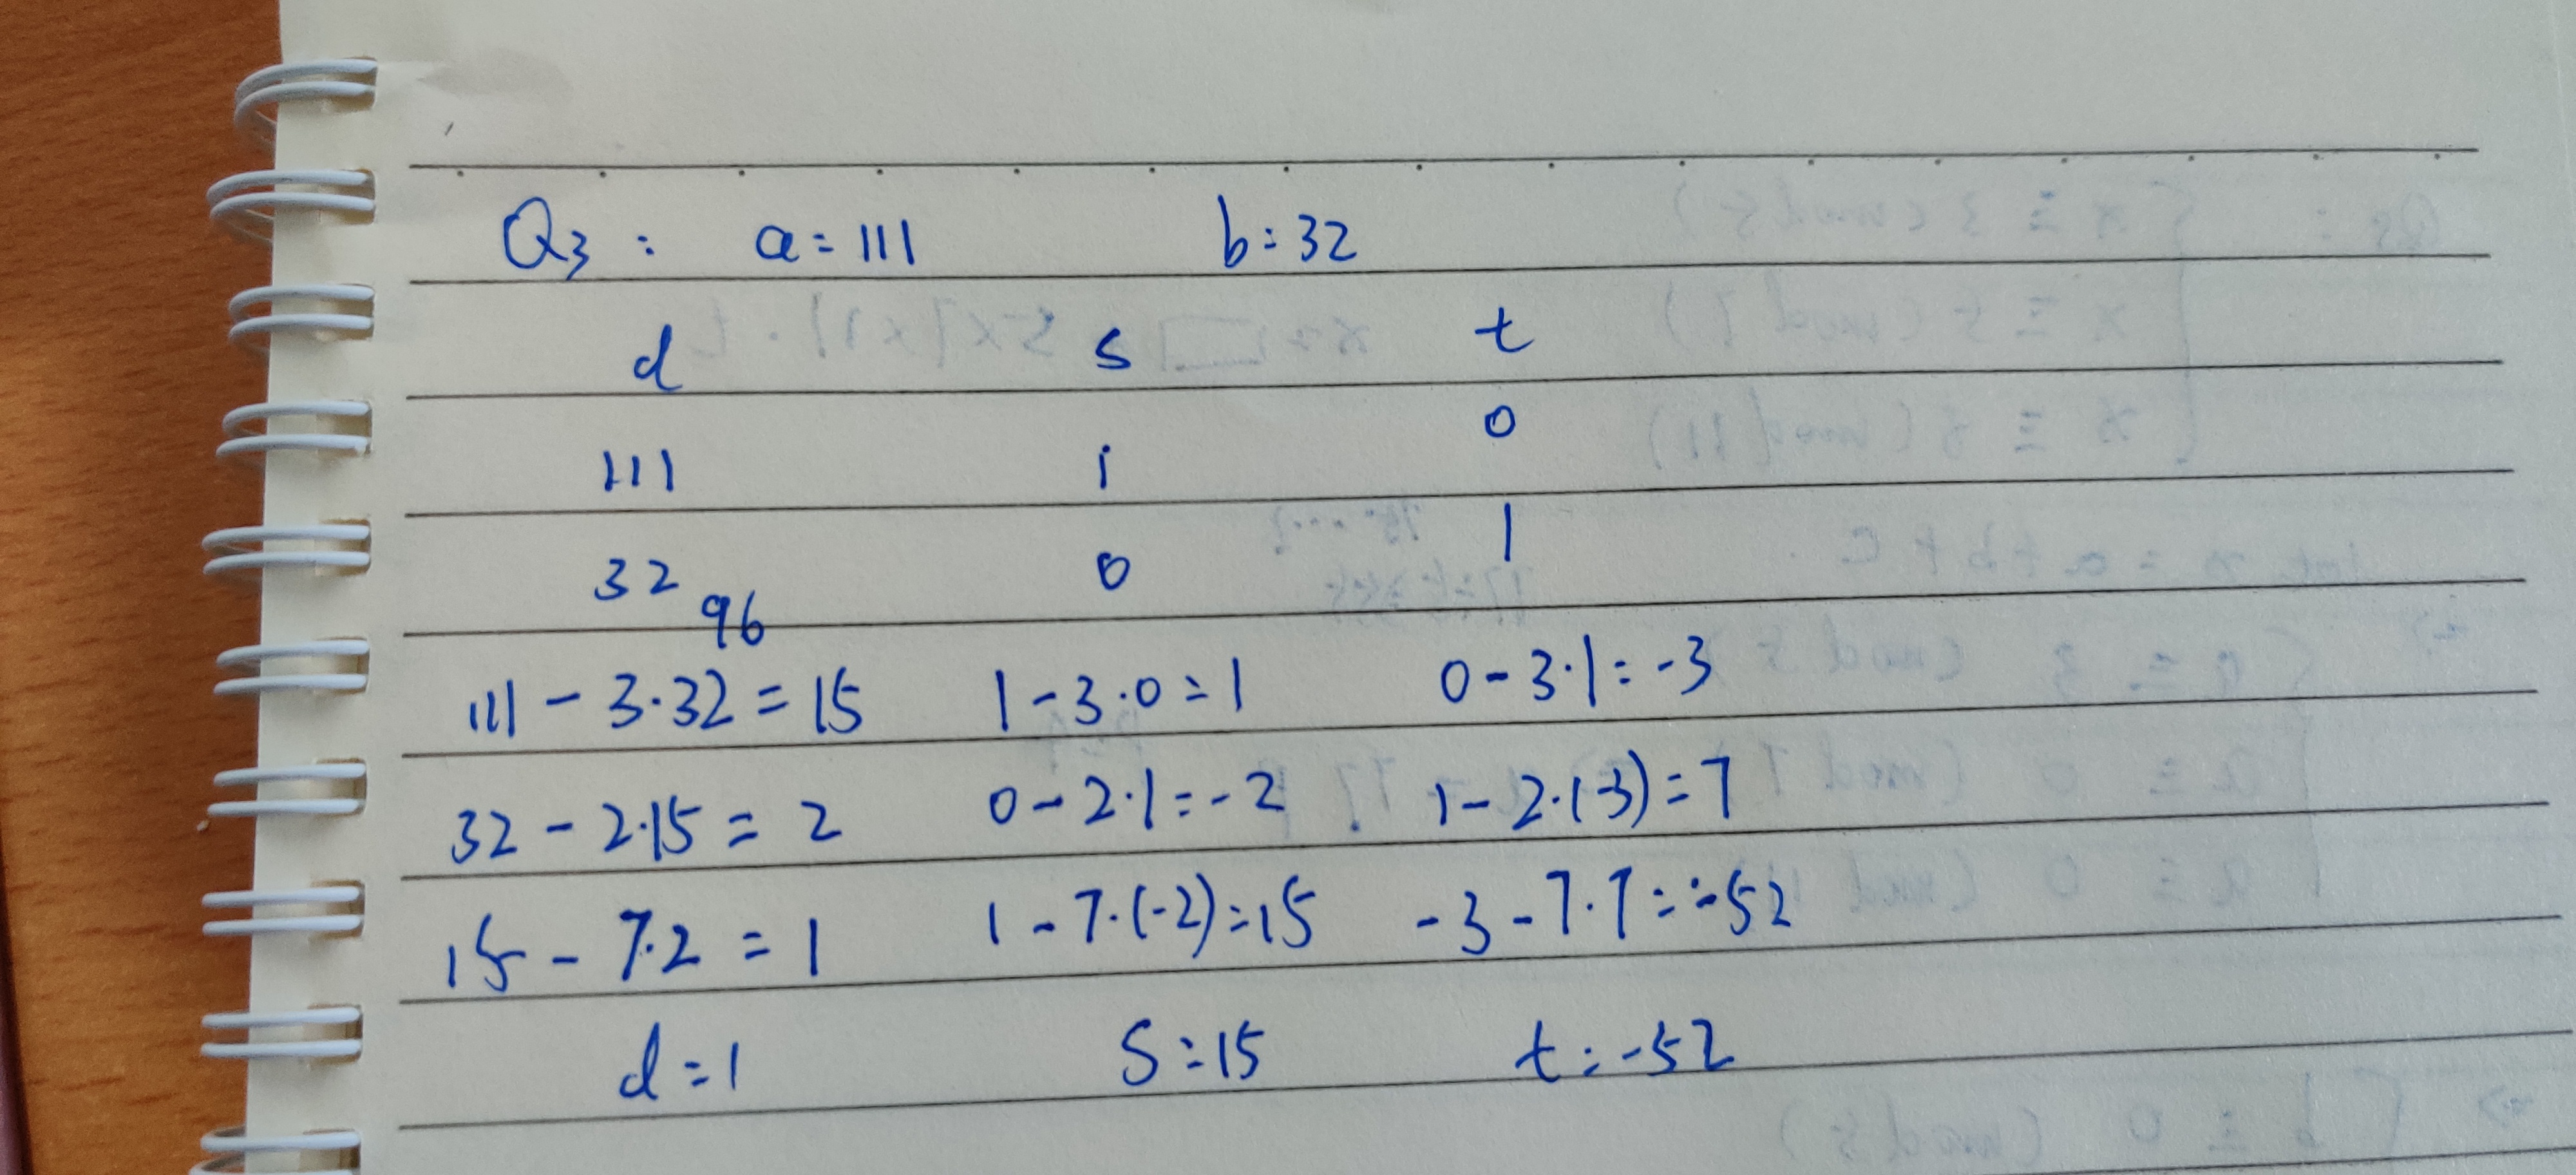 Q3: a=111 b=32
d s t
111 1 0
32 0 1
96
111 - 3·32 = 15 1 - 3·0 = 1 0 - 3·1 = -3
32 - 2·15 = 2 0 - 2·1 = -2 1 - 2·(-3) = 7
15 - 7·2 = 1 1 - 7·(-2) = 15 -3 - 7·7 = -52
d = 1 S = 15 t = -52